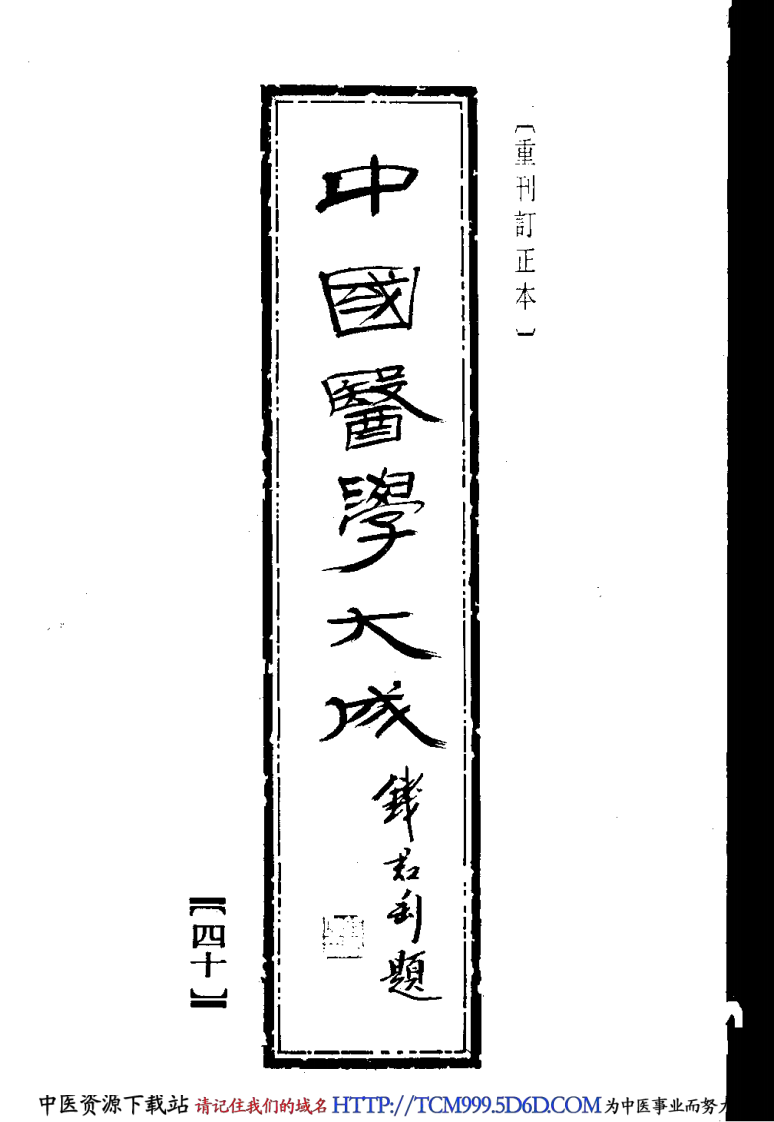 〔重刊訂正本〕
中國醫學大成
錢君匋題
【四十】
中医资源下载站 请记住我们的域名 HTTP://TCM999.5D6D.COM 为中医事业而努